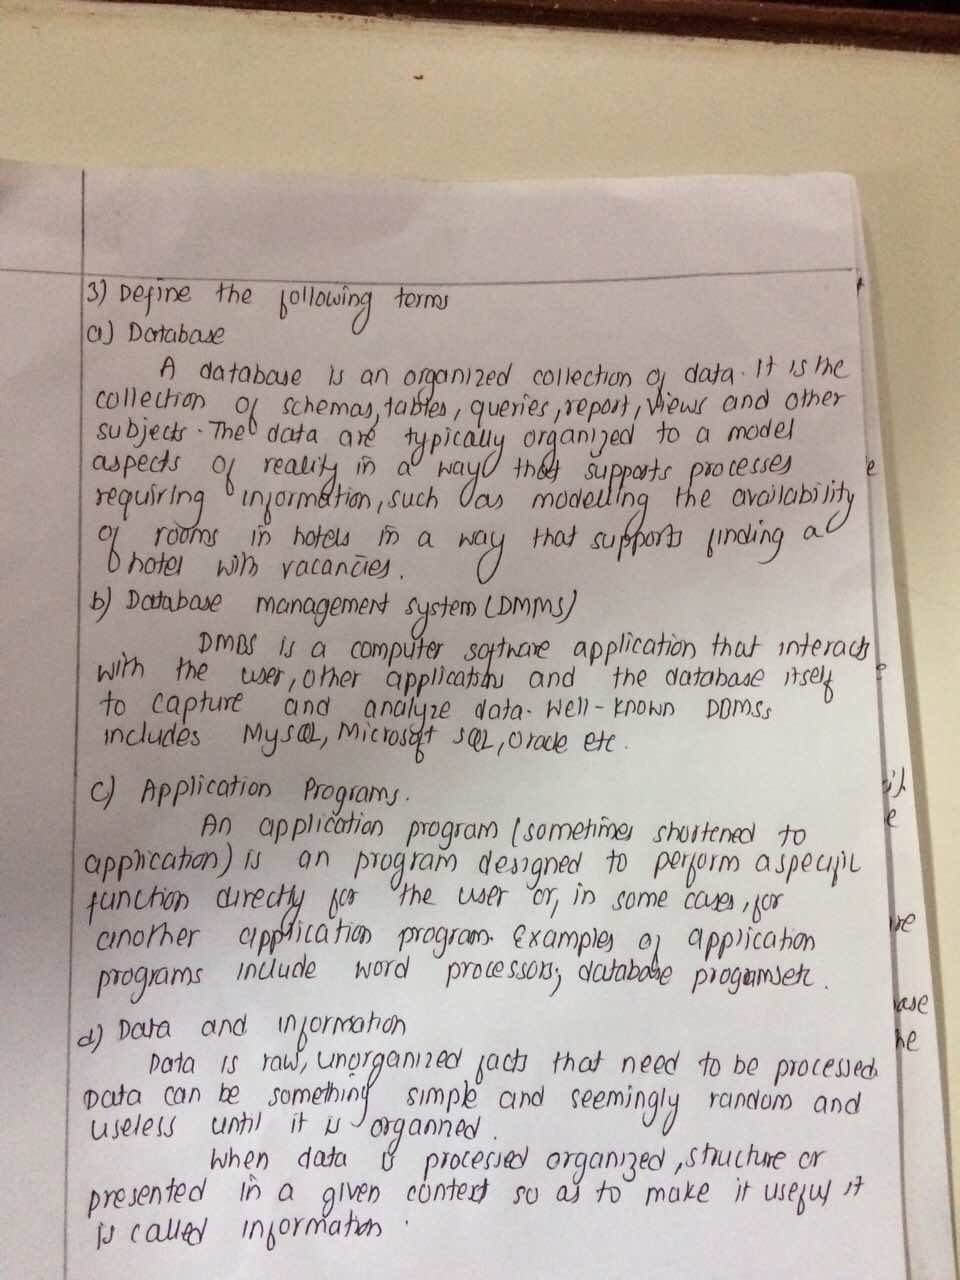 3) Define the following terms
a) Database
A database is an organized collection of data. It is the
collection of schemas, tables, queries, report, views and other
subjects. The data are typically organized to a model
aspects of reality in a way that supports processes
requiring information, such as modelling the availability
of rooms in hotels in a way that supports finding a
hotel with vacancies.
b) Database management system (DMMS)
DMBS is a computer software application that interacts
with the user, other applications and the database itself
to capture and analyze data. Well-known DBMSs
includes MySQL, Microsoft SQL, Oracle etc.
c) Application Programs.
An application program (sometimes shortened to
application) is an program designed to perform a specific
function directly for the user or, in some cases, for
another application program. Examples of application
programs include word processors; database programs etc.
d) Data and information
Data is raw, unorganized facts that need to be processed.
Data can be something simple and seemingly random and
useless until it is organized.
When data is processed organized, structure or
presented in a given context so as to make it useful it
is called information.